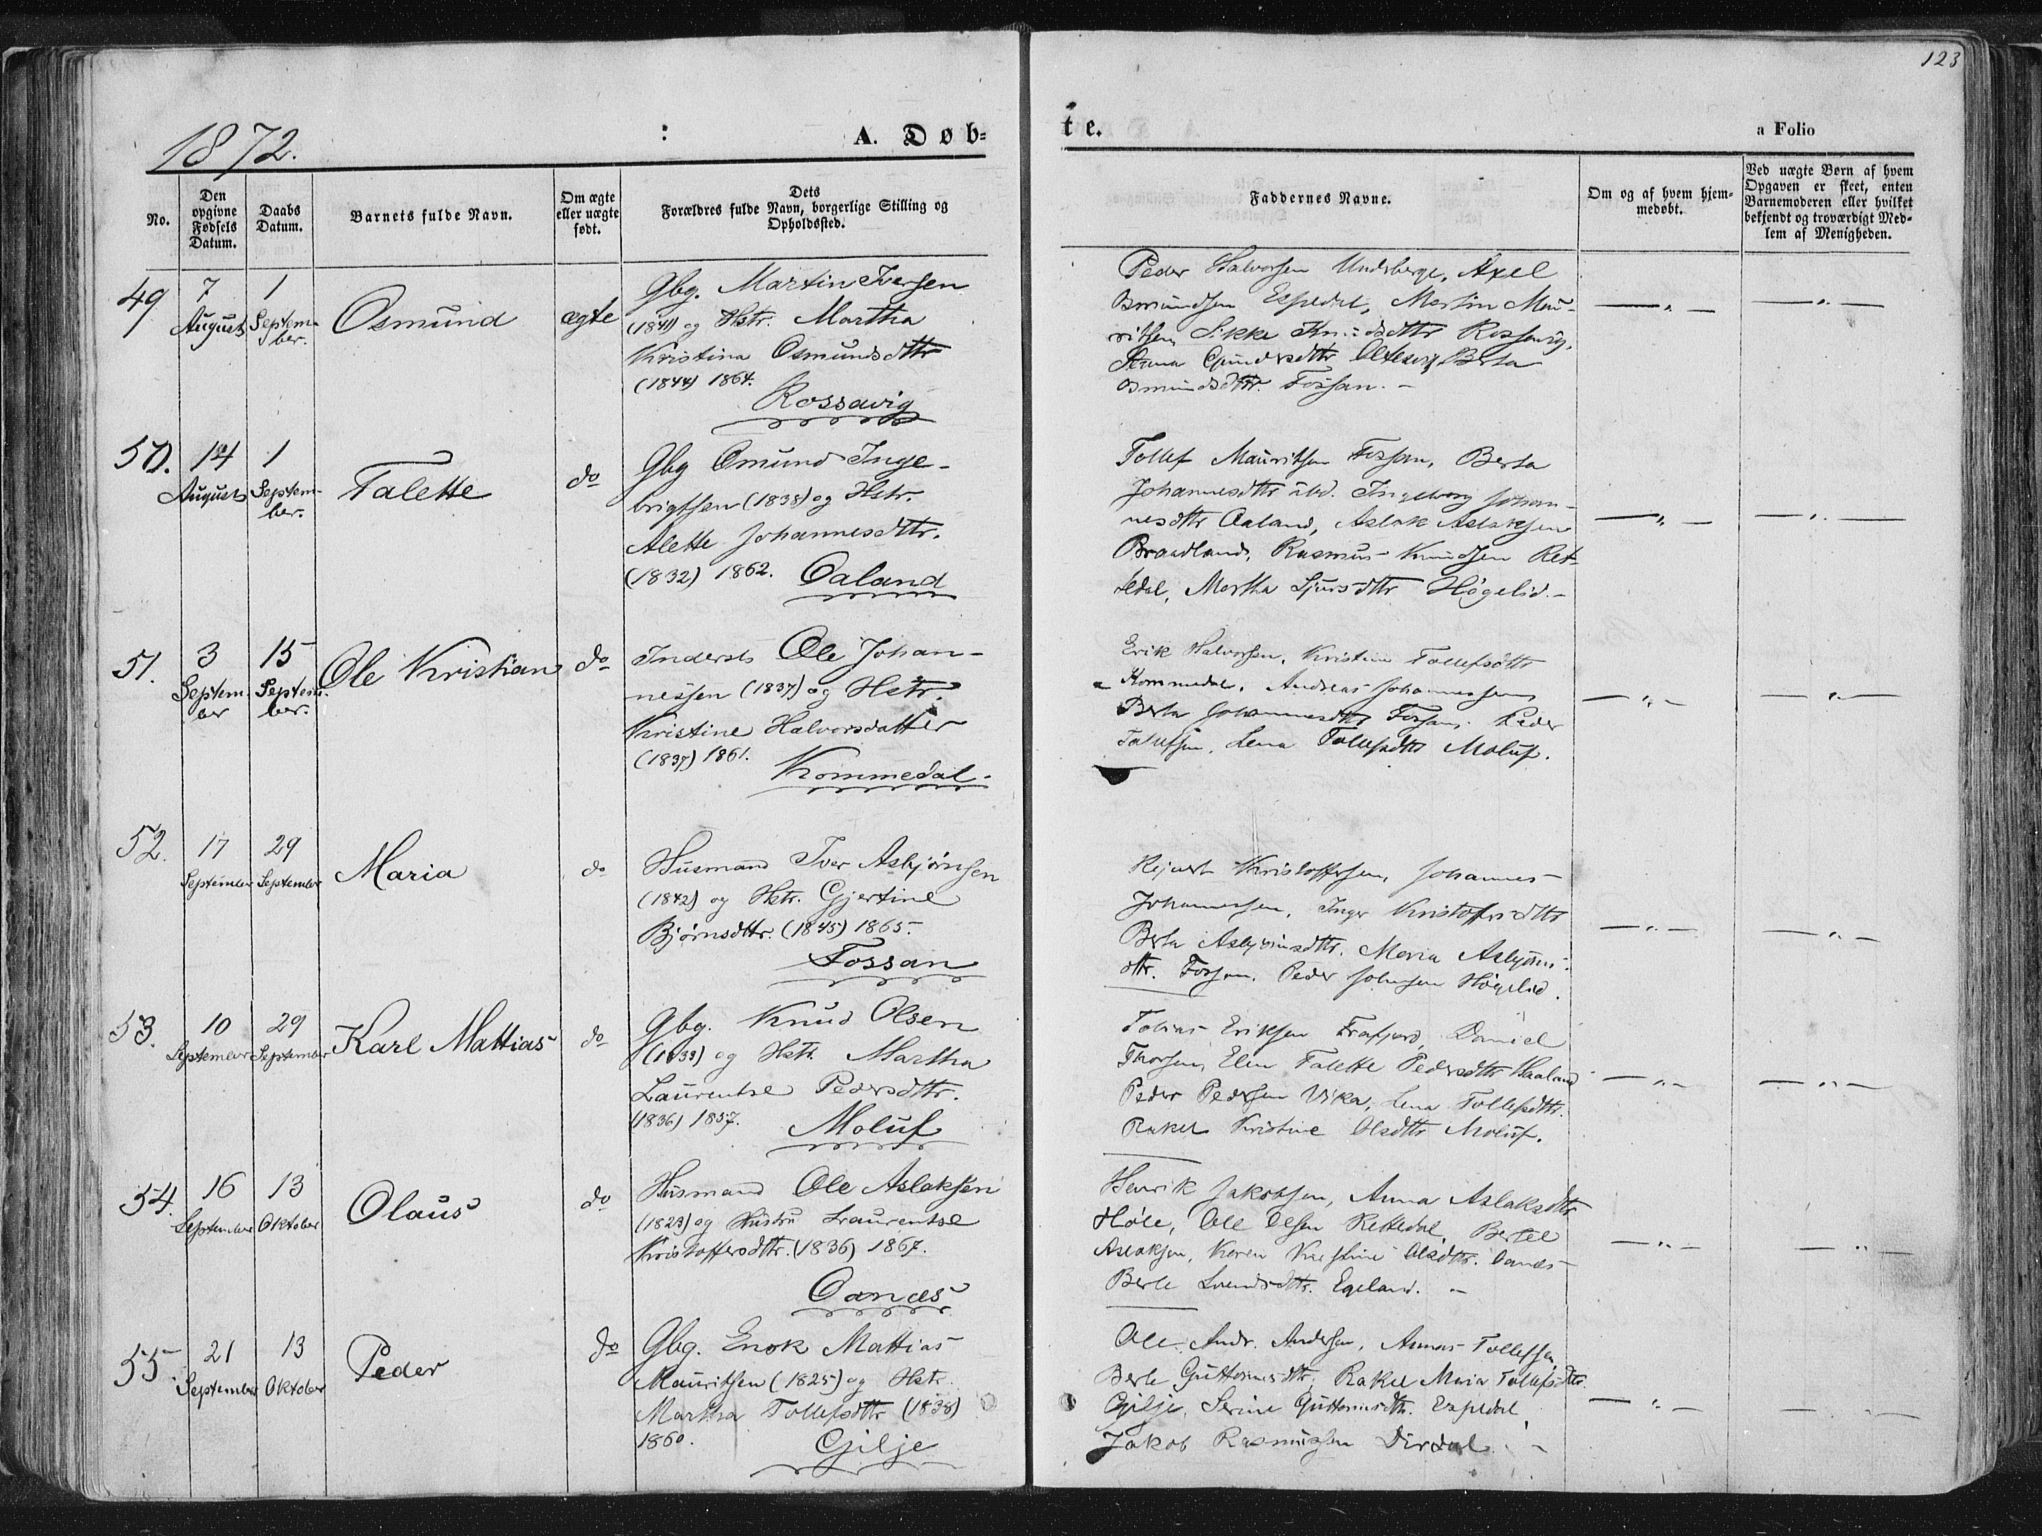 123
1872.
: A. Døb=
te.
a Folio
No.
Den opgivne Fødsels Datum.
Daabs Datum.
Barnets fulde Navn.
Om ægte eller uægte født.
Dets Forældres fulde Navn, borgerlige Stilling og Opholdssted.
Faddernes Navne.
Om og af hvem hjem-medøbt.
Ved uægte Børn af hvem Opgaven er skeet, enten Barnemoderen eller hvilket bekjendt og troværdigt Med-lem af Menigheden.
49 7 August 1 September. Osmund ægte
Gbg. Martin Iversen
(1841) og Hstr. Martha
Kristina Osmundsdttr
(1844) 1864.
Rossavig
Peder Halvorsen Undsberge, Axel
Osmundsen Espedal, Martin Mau-
ritsen, Sikke Knudsdttr Rossavig,
Anna Gundersdttr Oltesvig Berta
Osmundsdttr. Fossan. -
50. 14 August 1 September. Talette do
Gbg Omund Inge-
brigtsen (1838) og Hstr.
Alette Johannesdttr.
(1832) 1862. Oaland
Tollef Mauritsen Fossan, Berta
Johannesdttr ibd. Ingeborg Johan-
nesdttr Oaland, Aslak Aslaksen
Braadland, Rasmus Knudsen Ret-
tedal, Martha Sjursdttr Høgelid. -
51. 3 September 15 September. Ole Kristian do
Inderst Ole Johan-
nessen (1837) og Hstr.
Kristine Halvorsdatter
(1837) 1861.
Kommedal.
Erik Halvorsen, Kristine Tollefsdttr
Kommedal, Andreas Johannessen,
Berta Johannesdttr Fossan, Peder
Tollefsen, Lena Tollefsdttr Moluf.
52. 17 September 29 September Maria do
Husmand Iver Asbjørnsen
(1842) og Hstr. Gjertine
Bjørnsdttr. (1845) 1865.
Fossan
Kristoffersen, Johannes
Johannessen, Inger Kristoffersdttr
Berta Asbjørnsdttr. Maria Asbjørns-
dttr. Fossan, Peder Johnsen Høgelid.
53. 10 September 29 September Karl Mattias do
Gbg. Knud Olsen
(1833) og Hstr. Martha
Laurentse Pedersdttr.
(1836) 1857. Moluf
Tobias Eriksen Frafjord, Daniel
Thorsen, Elen Talette Pedersdttr Haaland
Peder Pedersen Vika, Lena Tollefsdttr.
Rakel Kristine Olsdttr Moluf.
54. 16 September 13 Oktober Olaus do
Husmand Ole Aslaksen
(1823) og Hustru Laurentse
Kristoffersdttr. (1836) 1867.
Oanæs
Henrik Jakobsen, Anna Aslaksdttr
Høle, Ole Olsen Rettedal, Bertel
Aslaksen, Karen Kristine Olsdttr. Oanæs
Berte Svendsdttr. Egeland. -
55. 21 September 13 Oktober Peder do
Gbg. Enok Mattias
Mauritsen (1825) og Hstr.
Martha Tollefsdttr (1838)
1860. Gilje
Ole Andr. Andersen, Asmus Tollefsen,
Berte Guttormsdttr, Rakel Maria Tollefsdttr.
Gilje, Serine Guttormsdttr. Espedal,
Jakob Rasmussen Dirdal. -